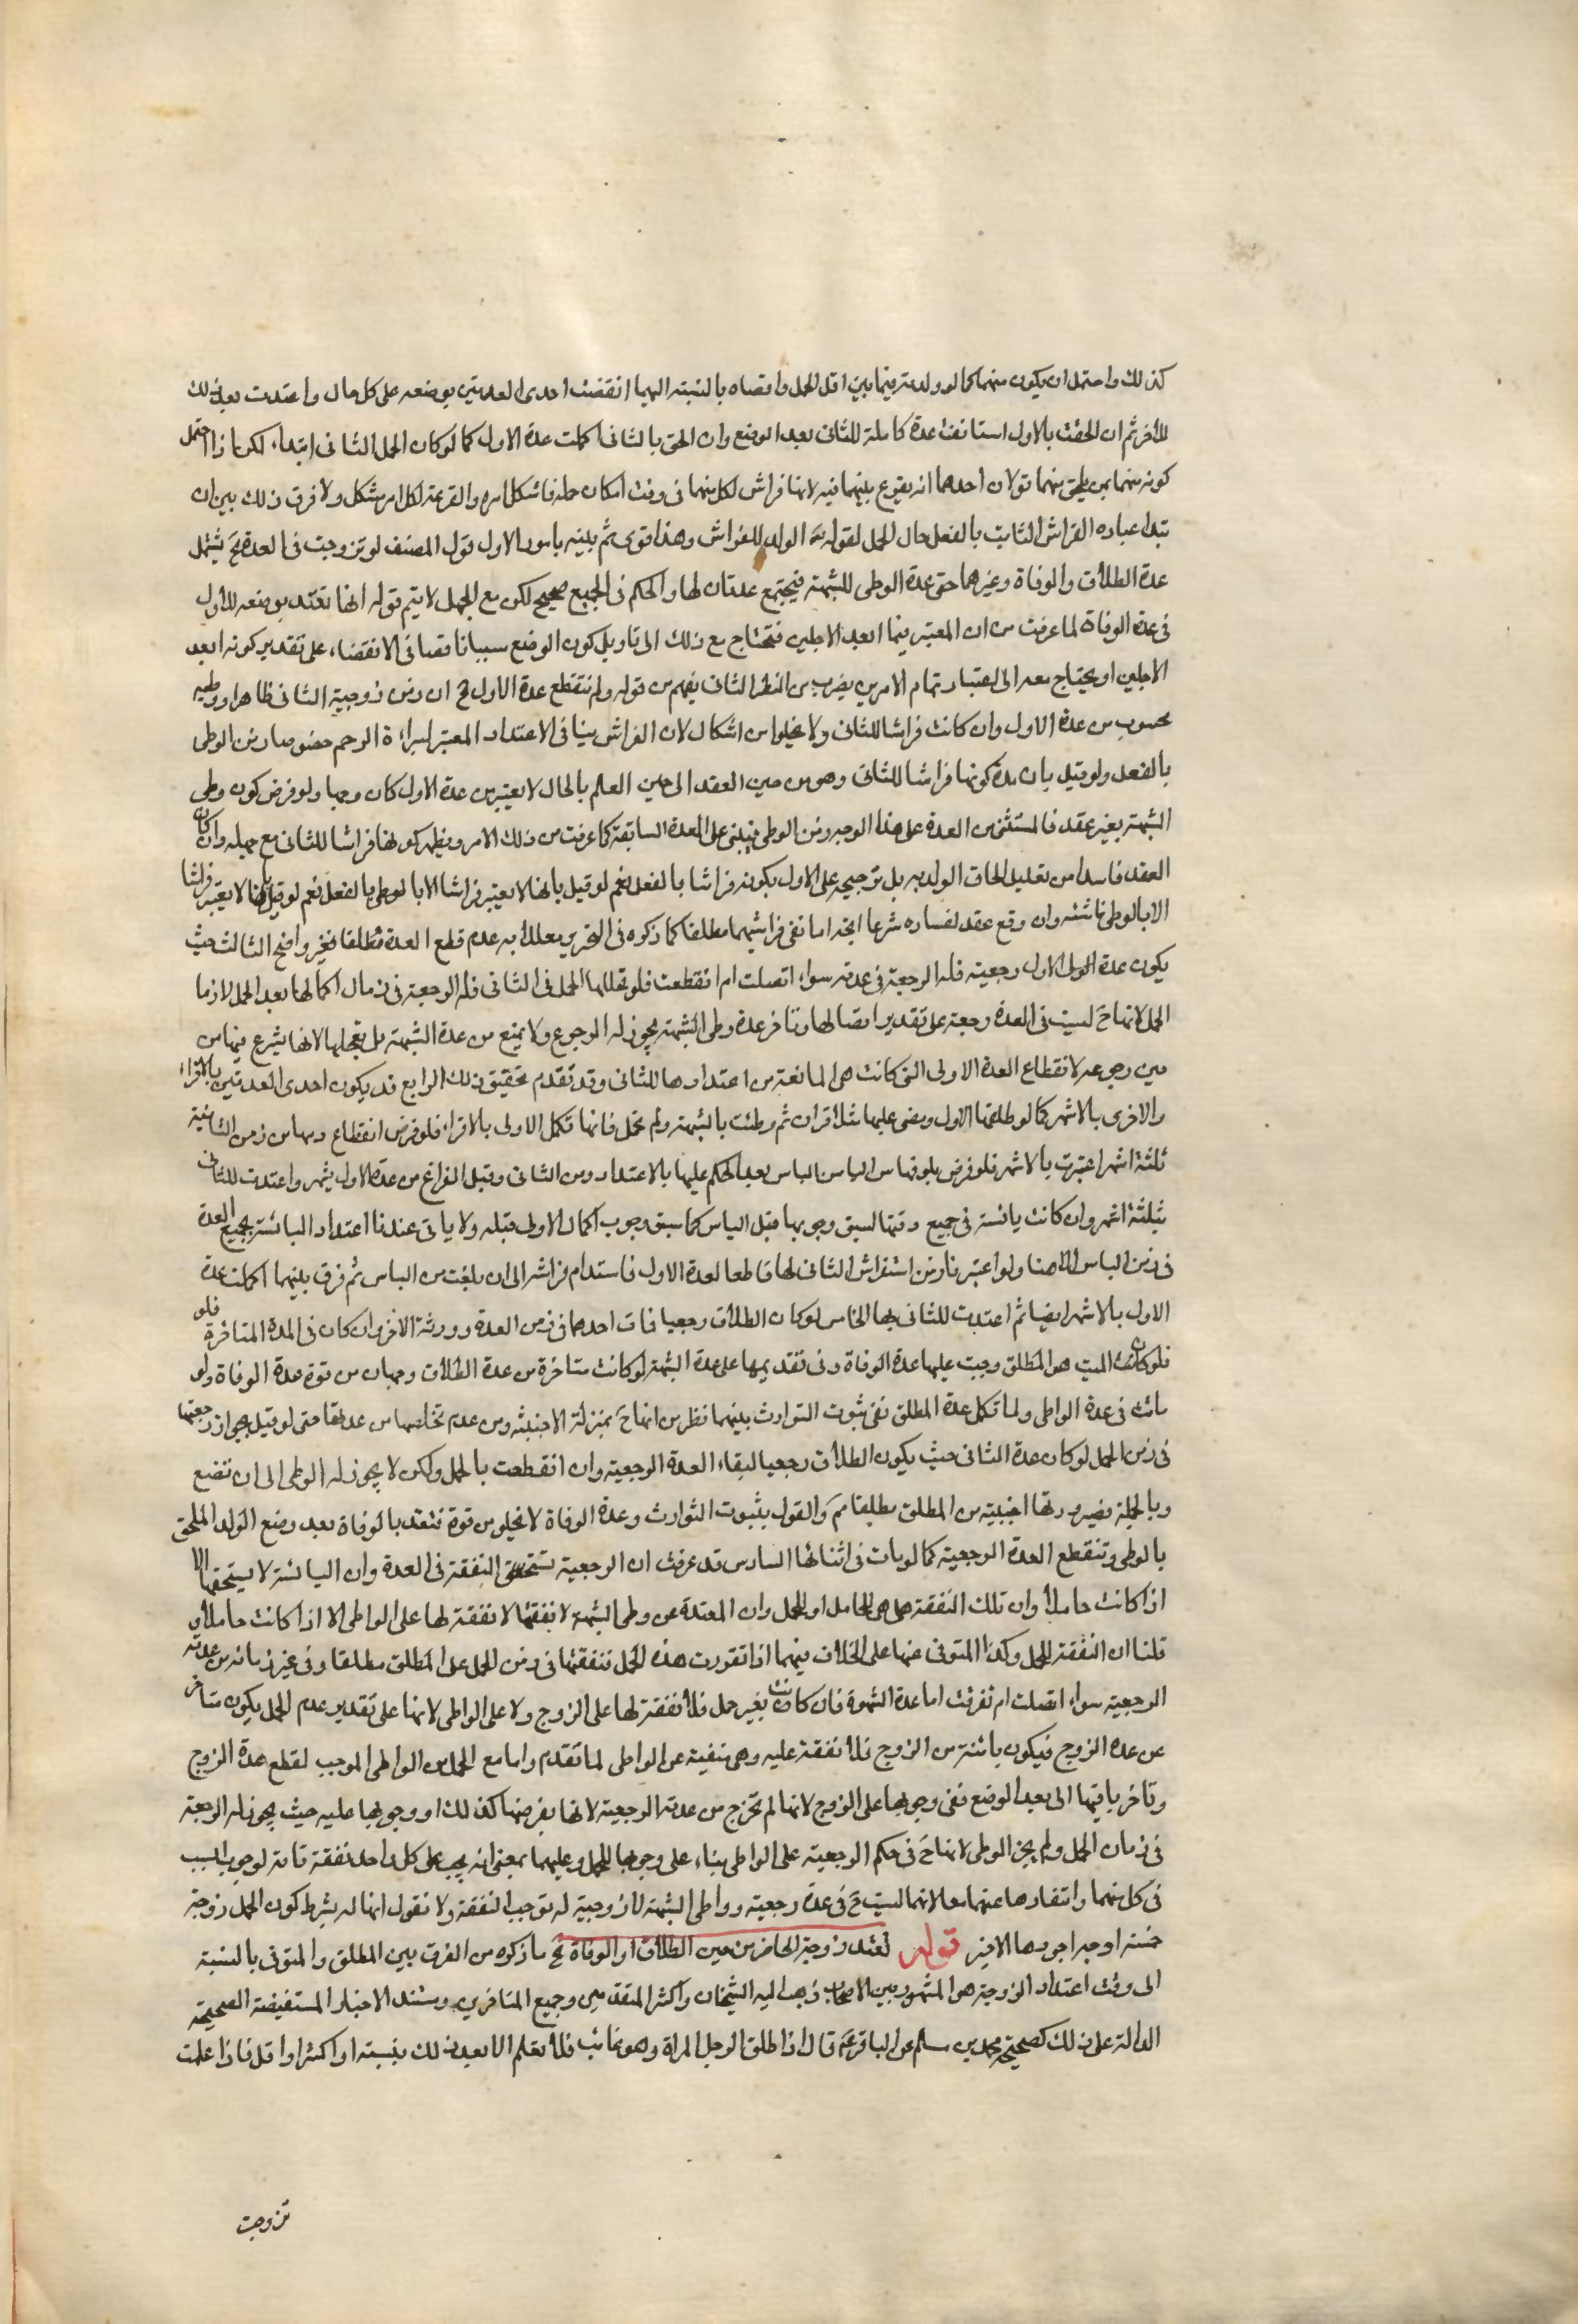 كذلك واحتمل ان يكون منهما كما لو ولدته فيما بين اقل الحمل واقصاه بالنسبة اليهما انقضت احدى العدتين بوضعه على كل حال واعتدت بعد ذلك
للاخر ثم ان الحقت بالاول استانفت عدة كاملة للثاني بعد الوضع وان الحق بالثاني اكملت عدة الاول كما لو كان الحمل للثاني ابتداء لكن اذا احتمل
كونه منهما بمن يلحق منهما قولان احدهما انه يقرع بينهما فيه لانها فراش لكل منهما في وقت امكان حمله فاشكل امره والقرعة لكل امر مشكل ولا فرق ذلك بين ان
الفراش الثابت بالفعل حال الحمل لقوله الولد للفراش وهذا قوى ثم بامور الاول قول المصنف لو تزوجت في العدة يشمل
عدة الطلاق والوفاة وغيرهما حتى عدة الوطى للشبهة فيجتمع عدتان لها والحكم في الجميع صحيح لكن مع الحمل لا يتم قوله انها تعتد بوضعه للاول
في عدة الوفاة لما عرفت من ان المعتبر فيها ابعد الاجلين فتحتاج مع ذلك الى تاويل كون الوضع سببا ناقصا في الانقضاء على تقدير كونه ابعد
الاجلين او يحتاج معه الى اعتبار تمام الامرين بضرب من النظر الثاني يفهم من قوله ولم تنقطع عدة الاول ان زمن زوجية الثاني ظاهرا ووطيه
محسوب من عدة الاول وان كانت فراشا للثاني ولا يخلوا من اشكال لان الفراش ينافي الاعتداد المعتبر لبراءة الرحم خصوصا زمن الوطى
بالفعل ولو قيل بان مدة كونها فراشا للثاني وهو من حين العقد الى حين العلم بالحال لا يعتبر من عدة الاول كان وجها ولو فرض كون وطى
الشبهة بغير عقد فالمستثنى من العدة على هذا الوجه زمن الوطى فيبنى على العدة السابقة كما عرفت من ذلك الامر ويظهر كونها فراشا للثاني مع جهله وان كان
العقد فاسدا من تعليل الحاق الولد به بل ترجيحه على الاول بكونه فراشا بالفعل نعم لو قيل بانها لا يعتبر فراشا الا بالوطى بالفعل نعم لو قيل بانها لا يعتبر فراشا
الا بالوطى وان وقع عقد لفساده شرعا اتجه اما نفي فراشيهما مطلقا كما ذكره في التحرير معللا به عدم قطع العدة مطلقا فغير واضح الثالث حيث
يكون عدة الاول رجعية فله الرجعة في عدته سواء اتصلت ام انقطعت فلو تخللها الحمل في الثاني فله الرجعة في زمان اكمالها بعد الحمل لا زمان
الحمل لانها ح ليست في العدة رجعة على تقدير اتصالها وتاخر عدة وطى الشبهة يجوز له الرجوع ولا يمنع من عدة الشبهة بل تعجلها لانها يشرع فيها من
حين رجوعه لانقطاع العدة الاولى التي كانت هي المانعة من اعتدادها للثاني وقد تقدم تحقيق ذلك الرابع قد يكون احدى العدتين بالاقراء
والاخرى بالاشهر كما لو طلقها الاول ومضى عليها ثم وطئت بالشبهة ولم تحمل فانها تكمل الاولى بالاقراء فلو فرض انقطاع دمها من زمن الثانية
ثلثة اشهر اعتبرت بالاشهر فلو فرض بلوغها سن الياس بعد الحكم عليها بالاعتداد ومن الثاني وقبل الفراغ من عدة الاول بشهر واعتدت للثاني
بثلثة اشهر وان كانت يائسة في جميع وقتها لسبق وجوبها قبل الياس كما سبق وجوب اكمال الاولى قبله ولا ياتي عندنا اعتداد اليائسة بجميع العدة
في زمن الياس الا هنا ولو اعتبرنا زمن استفراش الثاني لها قاطعا لعدة الاول فاستدام فراشه الى ان بلغت سن الياس ثم فرق بينهما اكملت عدة
الاول بالاشهر ايضا ثم اعتدت للثاني بها الخامس لو كان الطلاق رجعيا فمات احدهما في زمن العدة وورثه الاخر وان كان في المدة المتاخرة فلو
فلو كان الميت هو المطلق وجبت عليها عدة الوفاة وفي تقديمها على عدة الشبهة لو كانت متاخرة من عدة الطلاق وجهان من قوة عدة الوفاة ولو
ماتت في عدة الواطى ولما تكمل عدة المطلق ففي ثبوت التوارث بينهما نظر من انها ح بمنزلة الاجنبية ومن عدم تخلصها من عدتها حتى لو قيل بجواز رجعتها
في زمن الحمل لو كان عدة الثاني حيث يكون الطلاق رجعيا لبقاء العدة الرجعية وان انقطعت بالحمل ولكن لا يجوز له الوطى الى ان تضع
وبالجملة فصيرورتها اجنبية من المطلق مطلقا مم والقول بثبوت التوارث وعدة الوفاة لا يخلو من قوة فتعتد بالوفاة بعد وضع الولد الملحق
بالوطى وتنقطع العدة الرجعية كما لو مات في اثنائها السادس قد عرفت ان الرجعية تستحق النفقة في العدة وان اليائسة لا يستحقها الا
اذا كانت حاملا وان تلك النفقة هل هي للحامل او للحمل وان المعتدة عن وطى الشبهة لا نفقة لها على الواطى الا اذا كانت حاملا و
قلنا ان النفقة للحمل وكذا المتوفى عنها على الخلاف فيهما اذا تقررت هذه الجمل فنفقتها في زمن الحمل على المطلق مطلقا وفي غير زمانه من عدته
الرجعية سواء اتصلت ام تفرقت اما عدة الشبهة فان كانت بغير حمل فلا نفقة لها على الزوج ولا على الواطى لانها على تقدير عدم الحمل يكون متاخر
عن عدة الزوج فيكون بائنة من الزوج فلا نفقة عليه وهى منفية عن الواطى لما تقدم واما مع الحمل من الواطى الموجب لقطع عدة الزوج
وتاخر باقيها الى بعد الوضع ففي وجوبها على الزوج لانها لم تخرج من عدته الرجعية لانها بفرضها كذلك او وجوبها عليه حيث يجوز له الرجعة
في زمان الحمل ولم يجز الوطى لانها ح في حكم الرجعية على الواطى بناء على وجوبها للحمل وعليهما بمعنى انه يجب على كل واحد نفقة تامة لوجود السبب
في كل منهما وانتفاءها عنهما معا لانها ليست ح في عدة رجعية وواطى الشبهة لا زوجية له توجب النفقة ولا نقول انها له بشرط كون الحمل زوجة
خمسة اوجه اجودها الاخير قوله تعتد زوجة الحاضر من حين الطلاق او الوفاة الخ ما ذكره من الفرق بين المطلق والمتوفى بالنسبة
الى وقت اعتداد الزوجة هو المشهور بين الاصحاب ذهب اليه الشيخان واكثر المتقدمين وجميع المتاخرين ومستند الاخبار المستفيضة الصحيحة
الدالة على ذلك كصحيحة محمد بن مسلم عن الباقر ع قال اذا طلق الرجل المراة وهو غائب فلا تعلم الا بعد ذلك بسنة او اكثر او اقل فاذا علمت
تزوجت